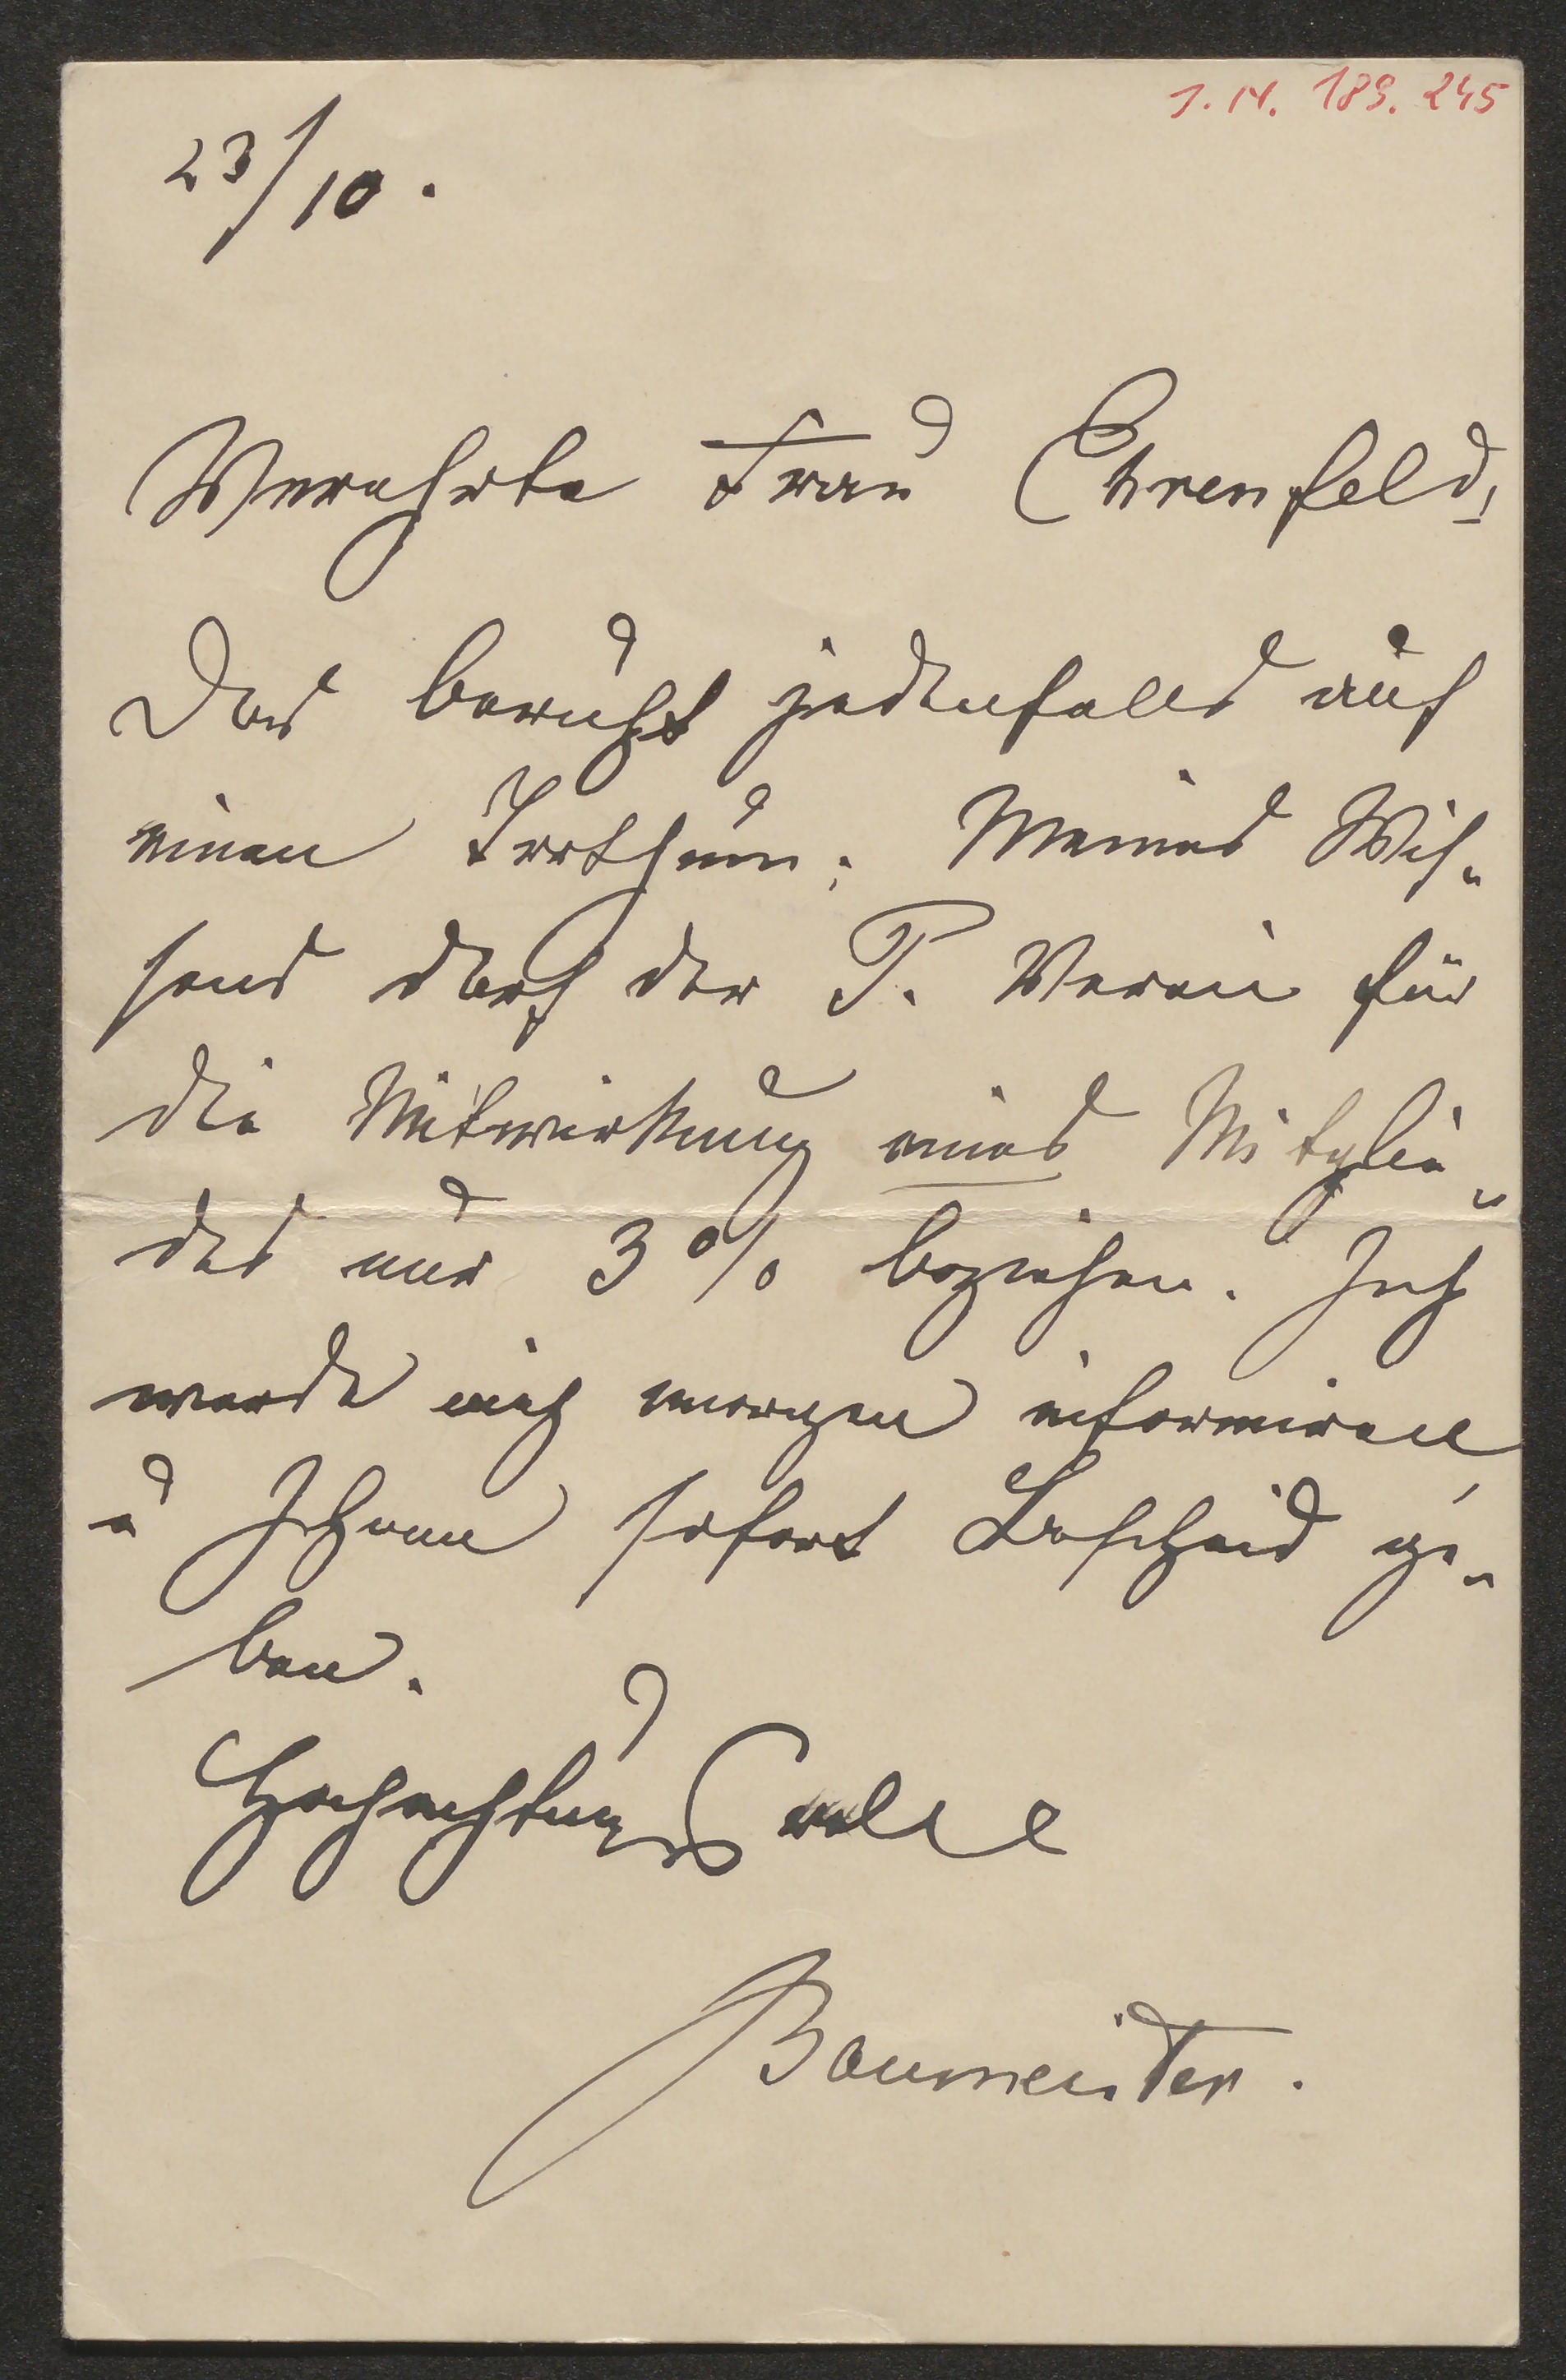 I.N. 189.245
23/10.
Verehrte Frau Ehrenfeld!
Das beruht jedenfalls auf
einen Irrthum. Meines Wis-
sens darf der P. Verein für
die Mitwirkung eines Mitglie-
des nur 3% beziehen. Ich
werde mich morgen informiren
u Ihnen sofort Bescheid ge-
ben.
Hochachtungsvoll
Baumeister.